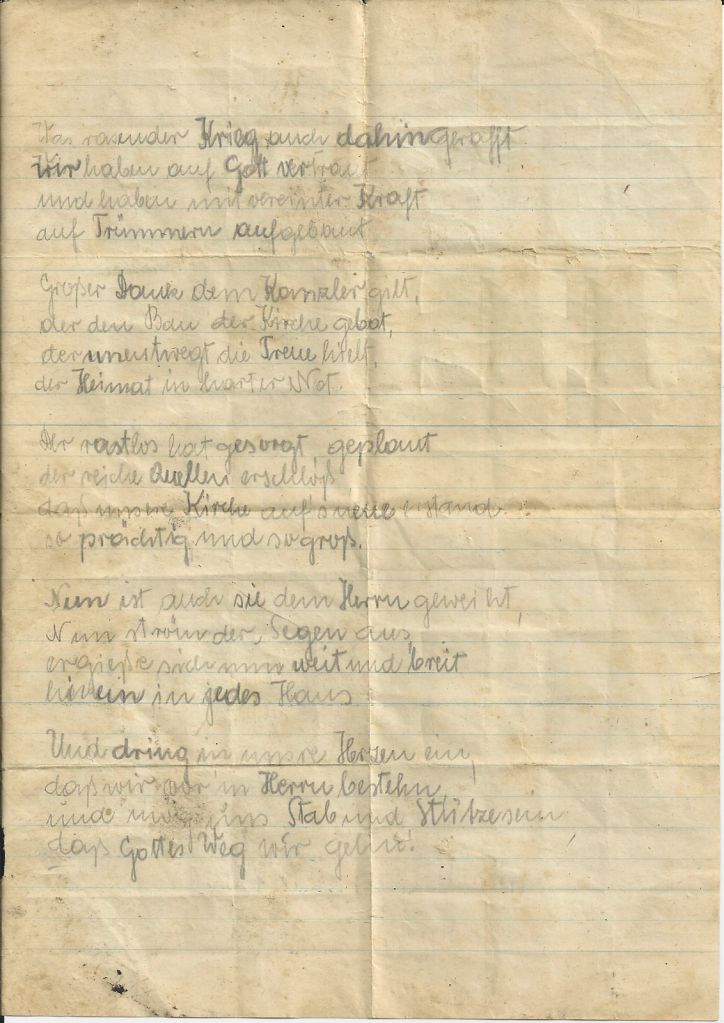 Was rasender Krieg auch dahingerafft
Wir haben auf Gott vertraut
und haben mit vereinter Kraft
auf Trümmern aufgebaut

Großer Dank dem Kanzler gilt,
der den Bau der Kirche gebot,
der unentwegt die Treue hielt,
der Heimat in harter Not.

Der rastlos hat gesorgt, geplant
der reiche Quellen erschloß
daß unsere Kirche auf's neue erstand
so prächtig und so groß.

Nun ist auch sie dem Herrn geweiht,
Nun ström der Segen aus,
ergieße sich nun weit und breit
hinein in jedes Haus

Und dring in unsre Herzen ein,
daß wir vor'm Herrn bestehn,
und mög uns Stab und Stütze sein
daß Gottes Weg wir gehn!